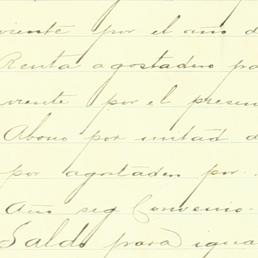 viente por el año d
Renta agostadero pa
viente por el presen
Abono por mitad d
por agostadero por
Año seg Convenio.
Saldo para igua